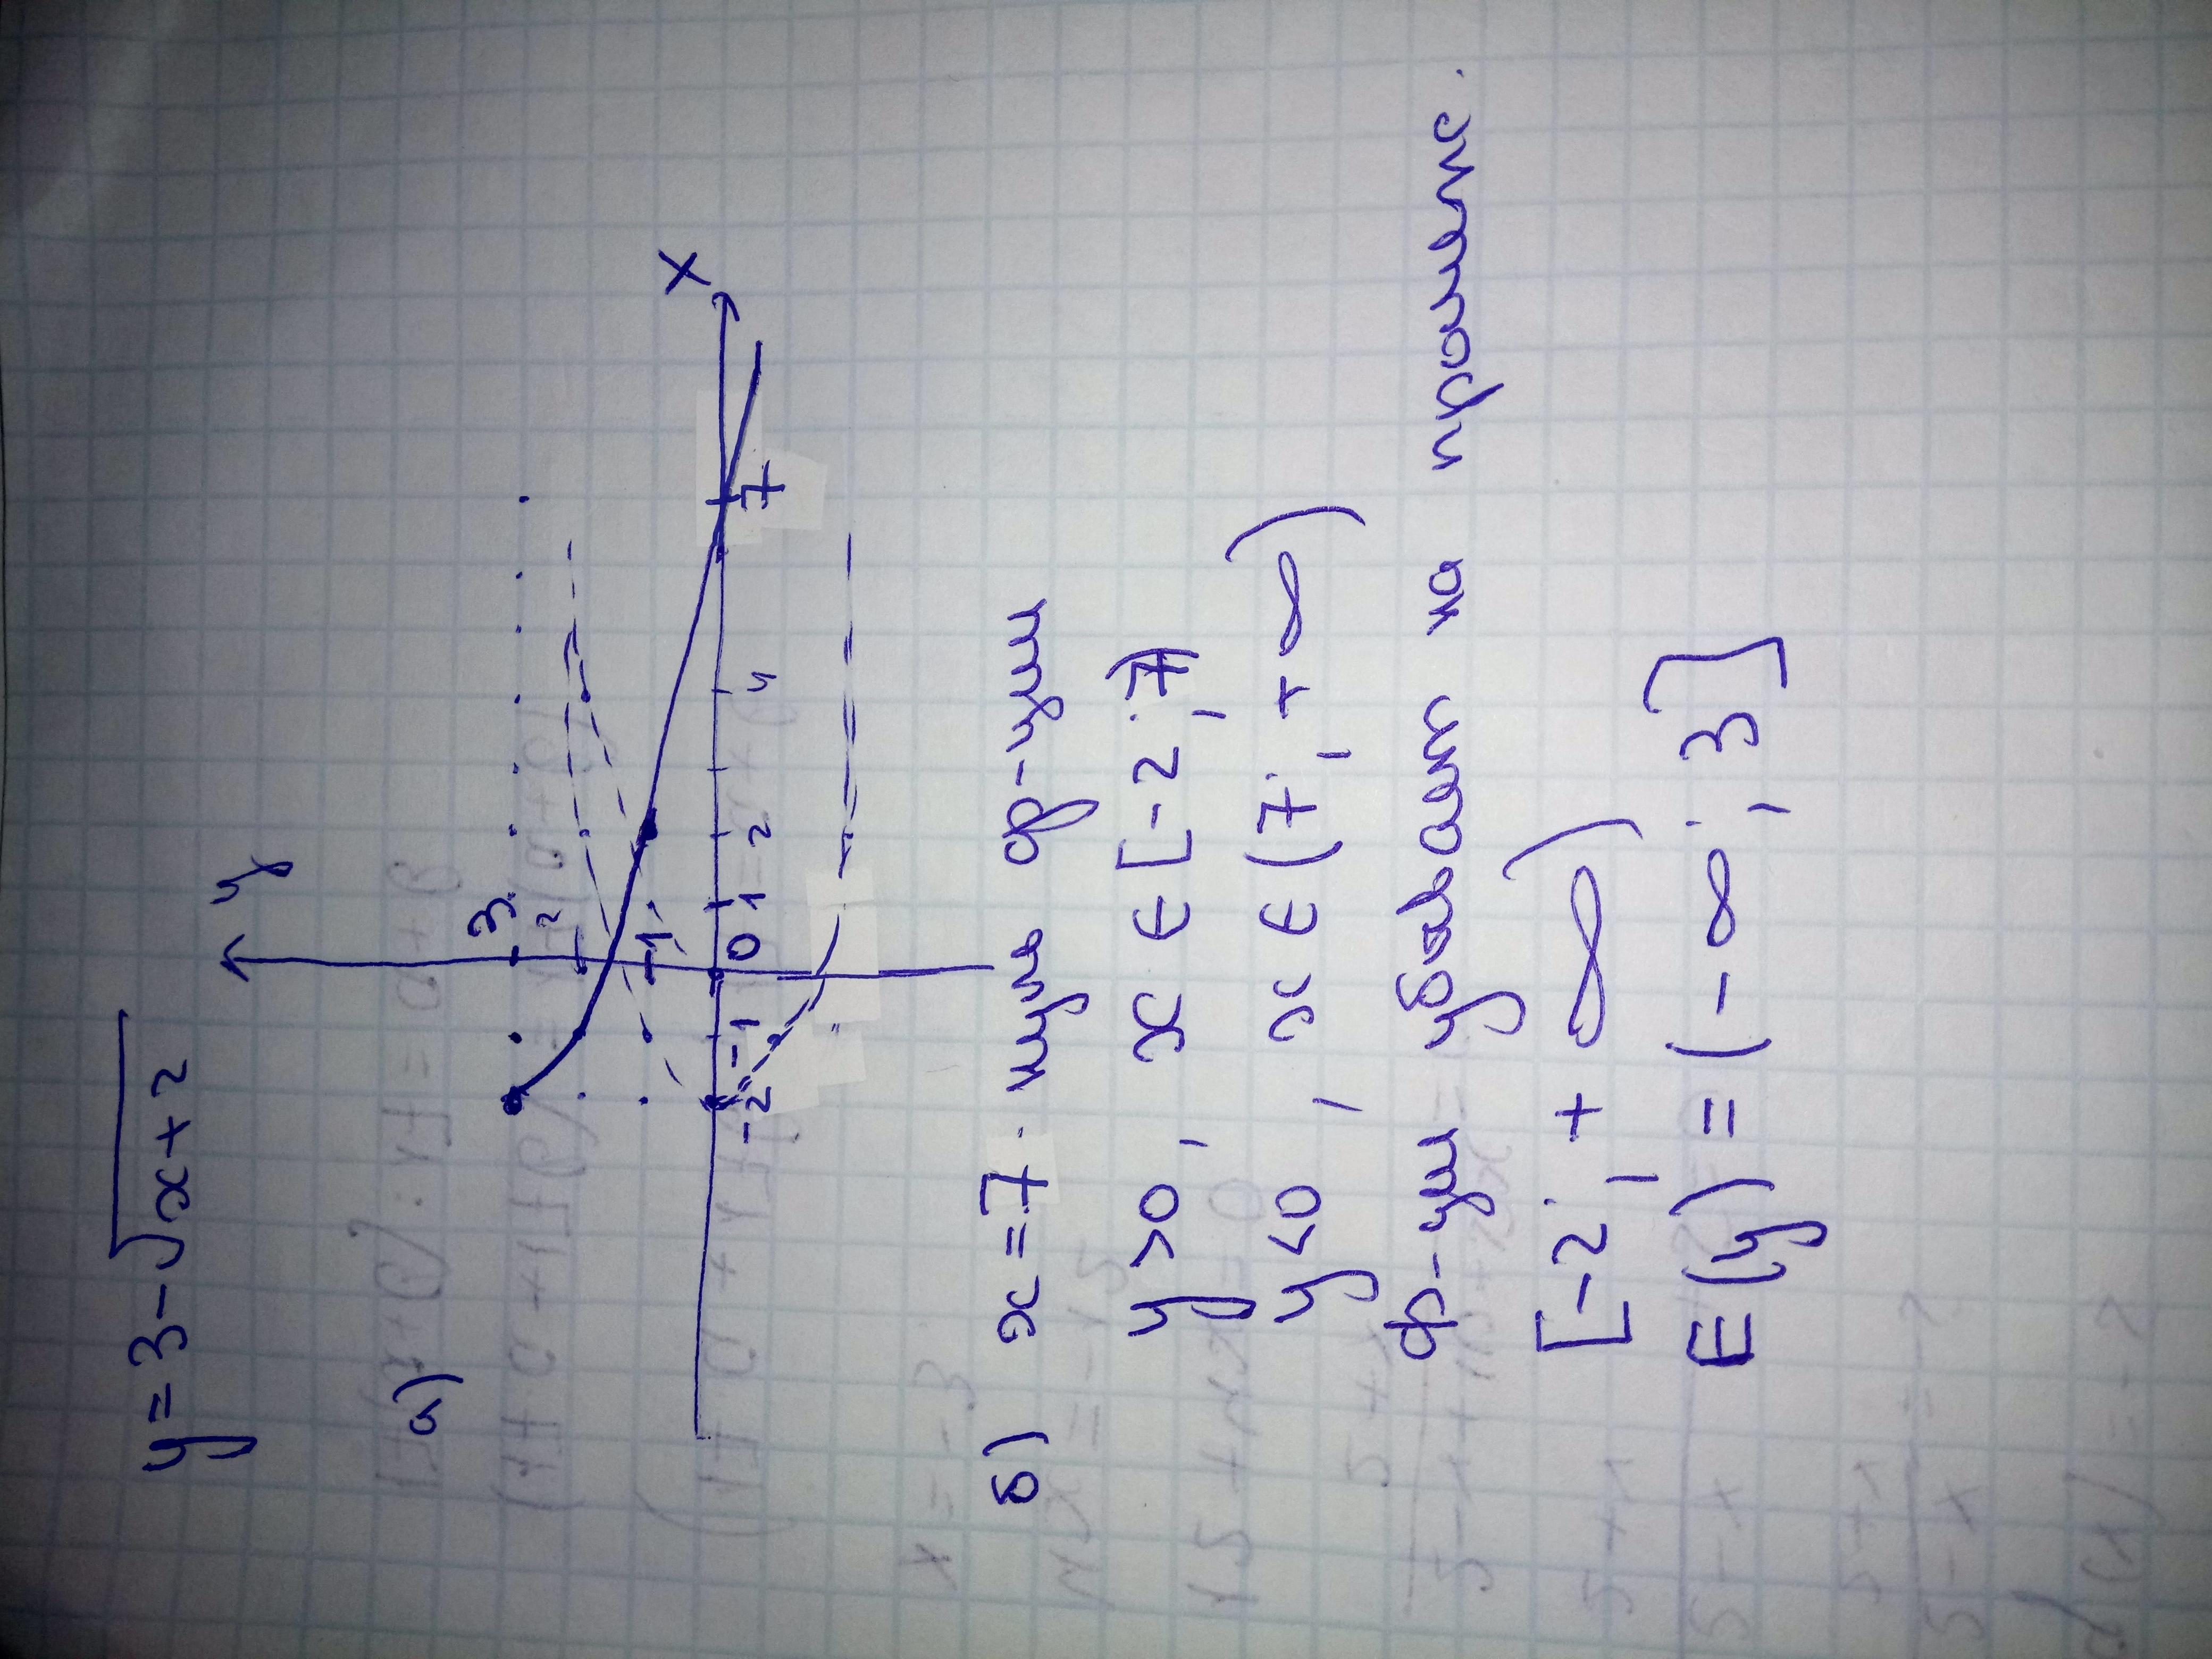 y = 3 - √x+2
а)
y
3
2
1
-2 -1 0 1 2 4 7
X
б) x = 7 . нуль ф-ции
y > 0 , x ∈ [-2 ; 7)
y < 0 , x ∈ (7 ; + ∞)
ф-ции убывает на промеже.
[-2 ; + ∞)
E(y) = (- ∞ ; 3]